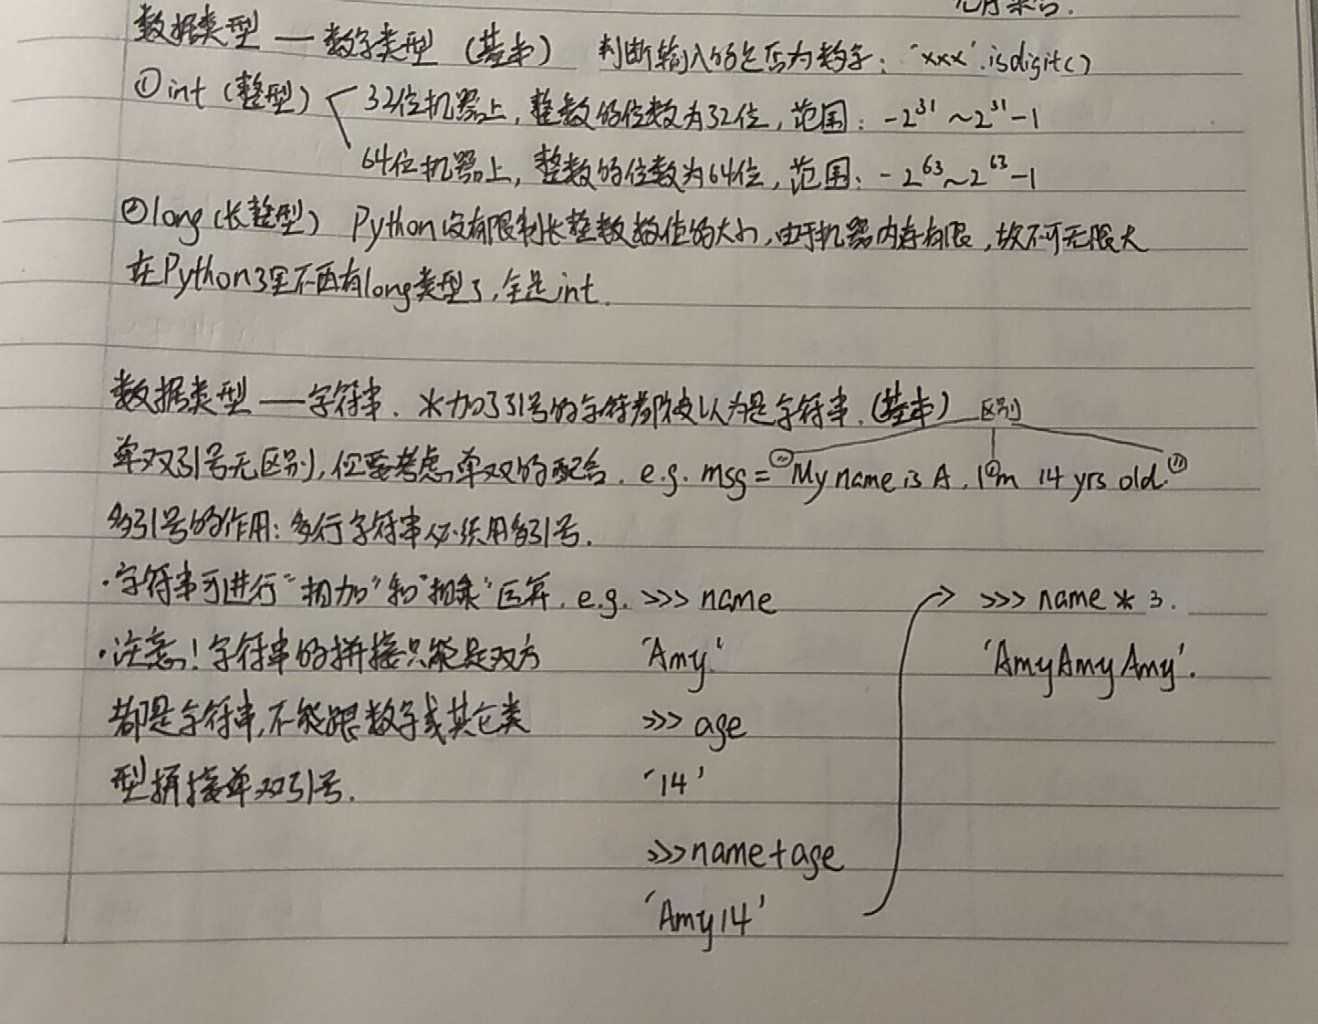 数据类型 — 数字类型 (基本) 判断输入的是否为数字: 'xxx'.isdigit()
①int (整型) 32位机器上, 整数的位数为32位, 范围: -2³¹ ~ 2³¹-1
64位机器上, 整数的位数为64位, 范围: -2⁶³ ~ 2⁶³-1
②long (长整型) Python没有限制长整数数值的大小, 由于机器内存有限, 故不可无限大
在Python3里不再有long类型了, 全是int.
数据类型 — 字符串. *加了引号的字符都被认为是字符串. (基本) 区别
单双引号无区别, 但要考虑单双的配合. e.g. msg = "My name is A, I'm 14 yrs old."
多引号的作用: 多行字符串必须用多引号.
·字符串可进行"相加"和"相乘"运算. e.g. >>> name >>> name * 3.
·注意! 字符串的拼接只能是双方 'Amy' 'AmyAmyAmy'.
都是字符串, 不能跟数字或其它类 >>> age
型拼接单双引号. '14'
>>> name+age
'Amy14'